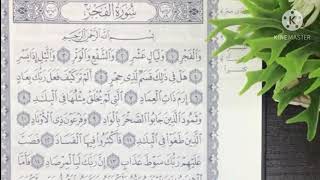 سُورَةُ الْفَجْرِ
بِسْمِ اللَّهِ الرَّحْمَٰنِ الرَّحِيمِ
وَالْفَجْرِ ١ وَلَيَالٍ عَشْرٍ ٢ وَالشَّفْعِ وَالْوَتْرِ ٣ وَاللَّيْلِ إِذَا يَسْرِ
٤ هَلْ فِي ذَٰلِكَ قَسَمٌ لِّذِي حِجْرٍ ٥ أَلَمْ تَرَ كَيْفَ فَعَلَ رَبُّكَ بِعَادٍ
٦ إِرَمَ ذَاتِ الْعِمَادِ ٧ الَّتِي لَمْ يُخْلَقْ مِثْلُهَا فِي الْبِلَادِ ٨
وَثَمُودَ الَّذِينَ جَابُوا الصَّخْرَ بِالْوَادِ ٩ وَفِرْعَوْنَ ذِي الْأَوْتَادِ ١٠
الَّذِينَ طَغَوْا فِي الْبِلَادِ ١١ فَأَكْثَرُوا فِيهَا الْفَسَادَ ١٢ فَصَبَّ
عَلَيْهِمْ رَبُّكَ سَوْطَ عَذَابٍ ١٣ إِنَّ رَبَّكَ لَبِالْمِرْصَادِ ١٤
KINEMASTER